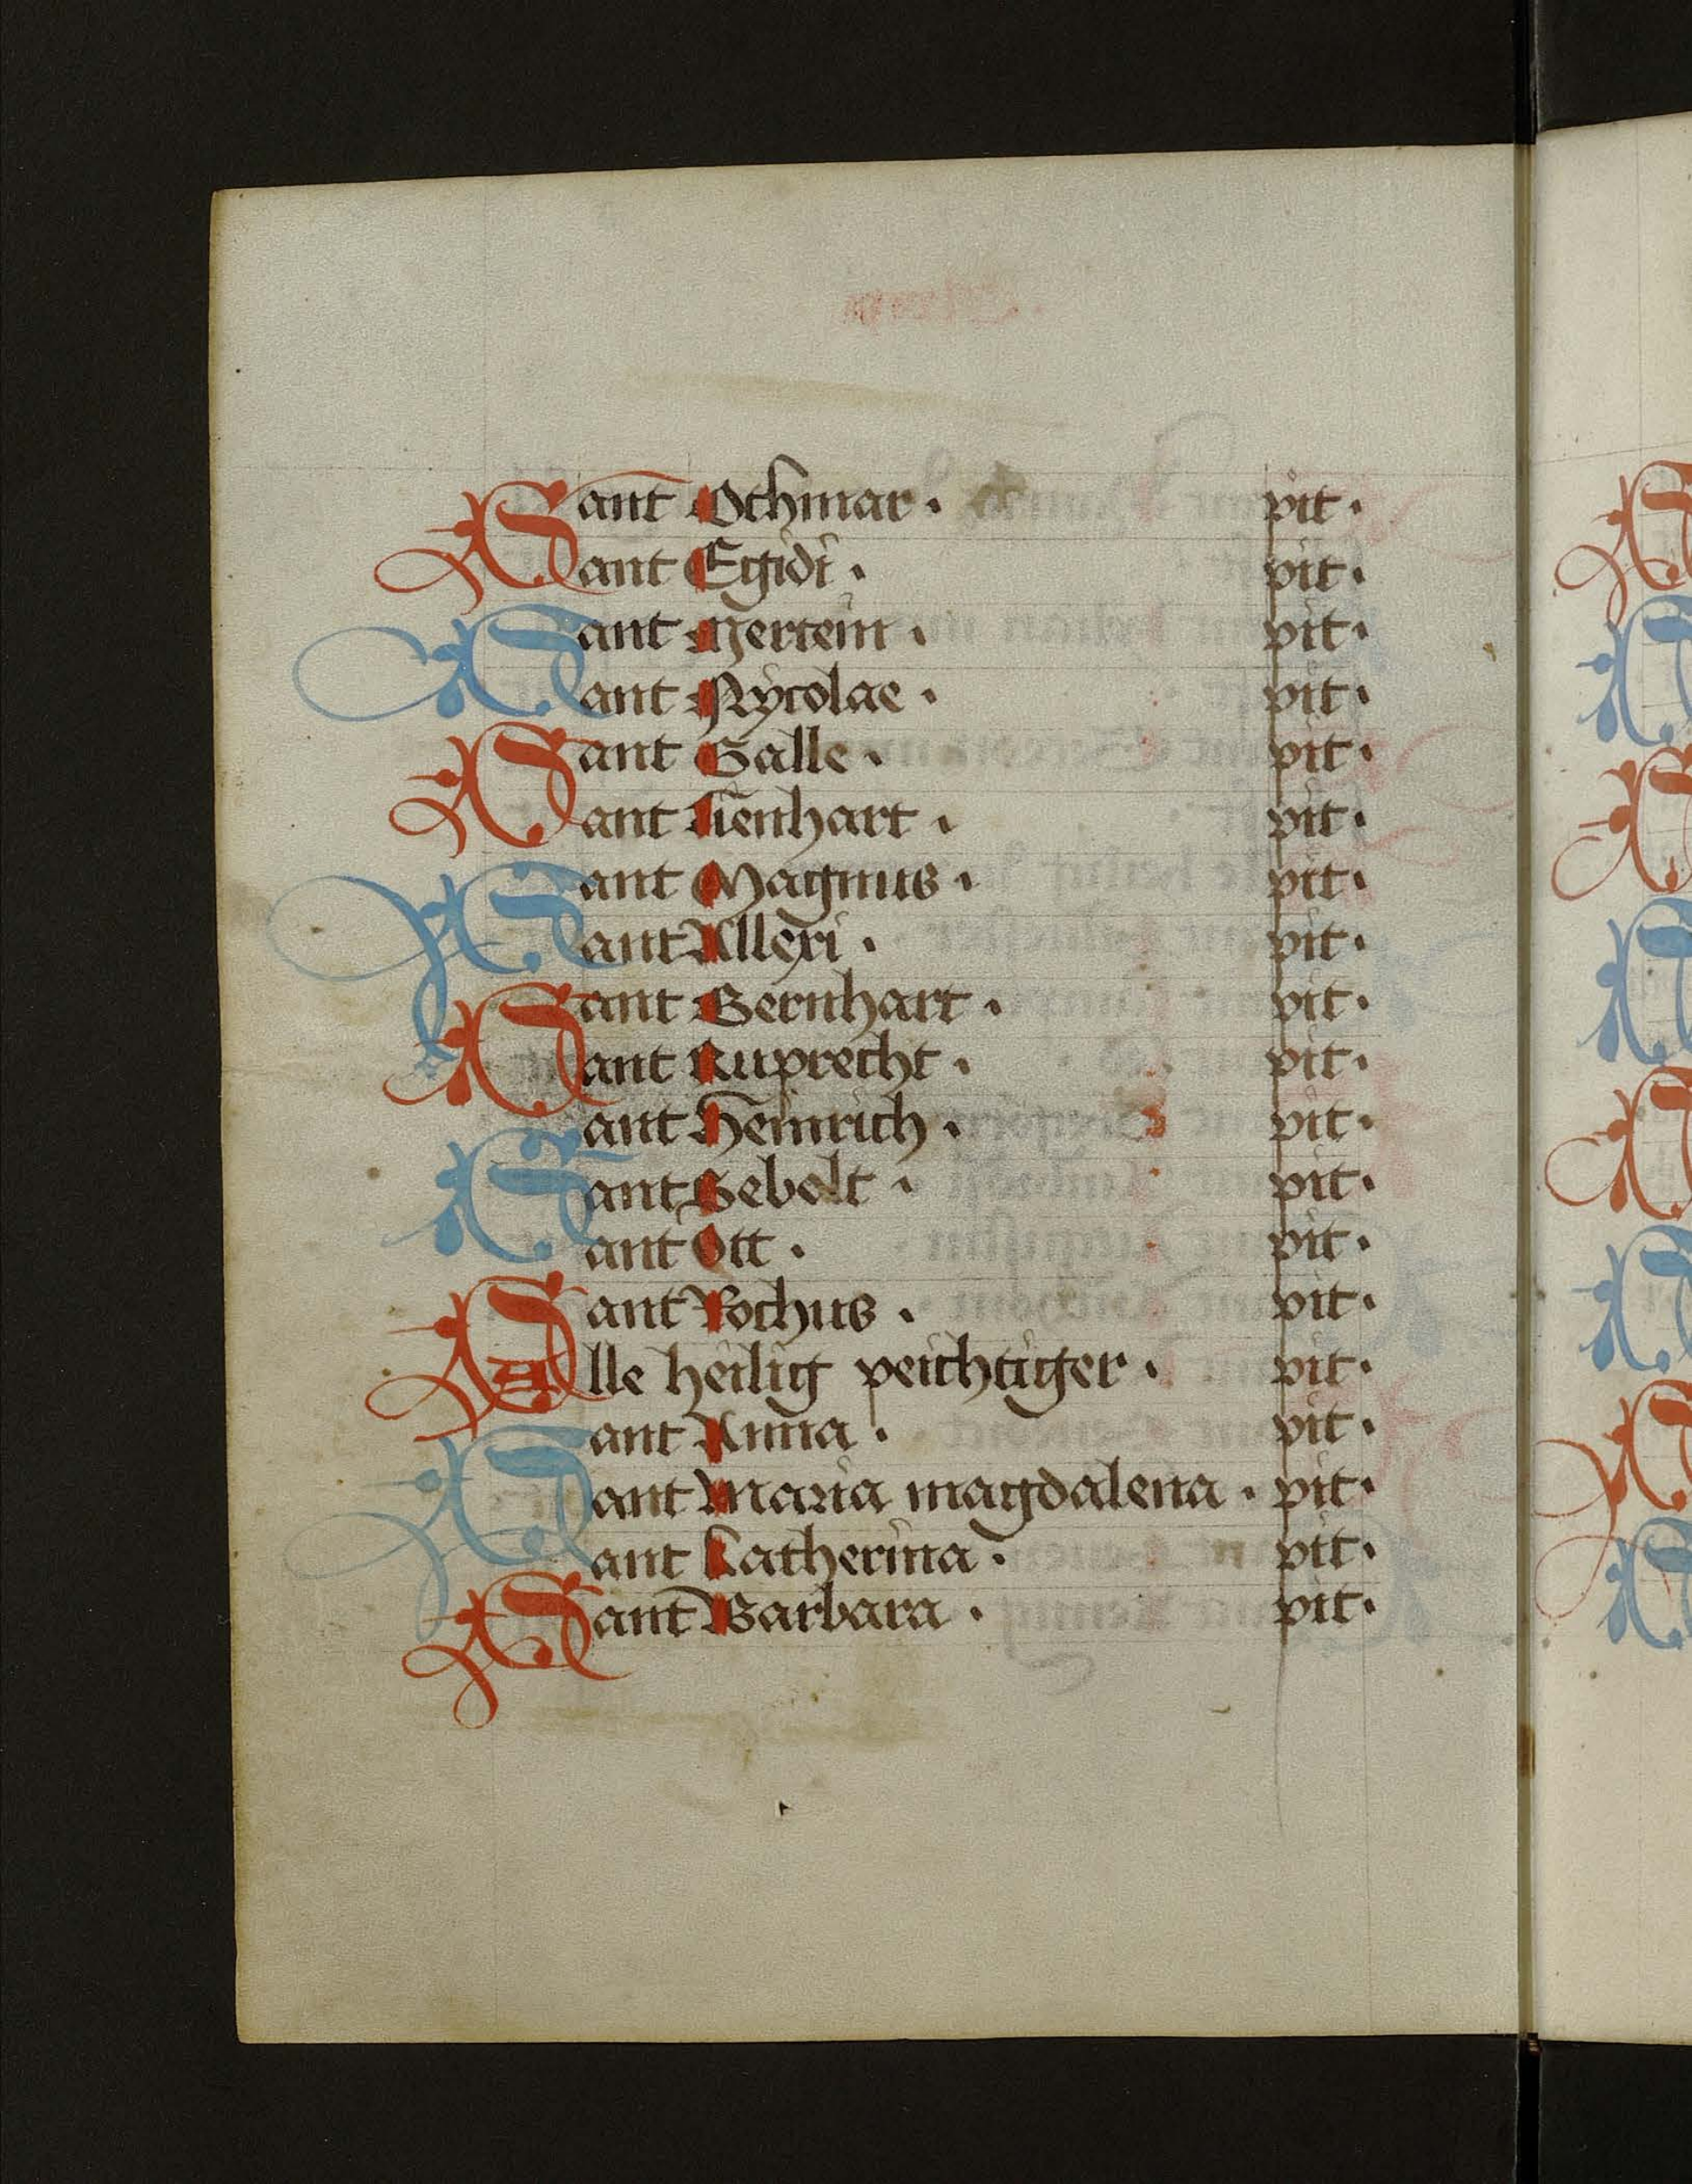 Sant Othmar · pit ·
Sant Egidi · pit ·
Sant Mertein · pit ·
Sant Nycolae · pit ·
Sant Galle · pit ·
Sant Lienhart · pit ·
Sant Magnus · pit ·
Sant Allexi · pit ·
Sant Bernhart · pit ·
Sant Ruprecht · pit ·
Sant Heinrich · pit ·
Sant Sebolt · pit ·
Sant Ott · pit ·
Sant Rochus · pit ·
Alle heilig peichtiger · pit ·
Sant Anna · pit ·
Sant Maria magdalena · pit ·
Sant Katherina · pit ·
Sant Barbara · pit ·